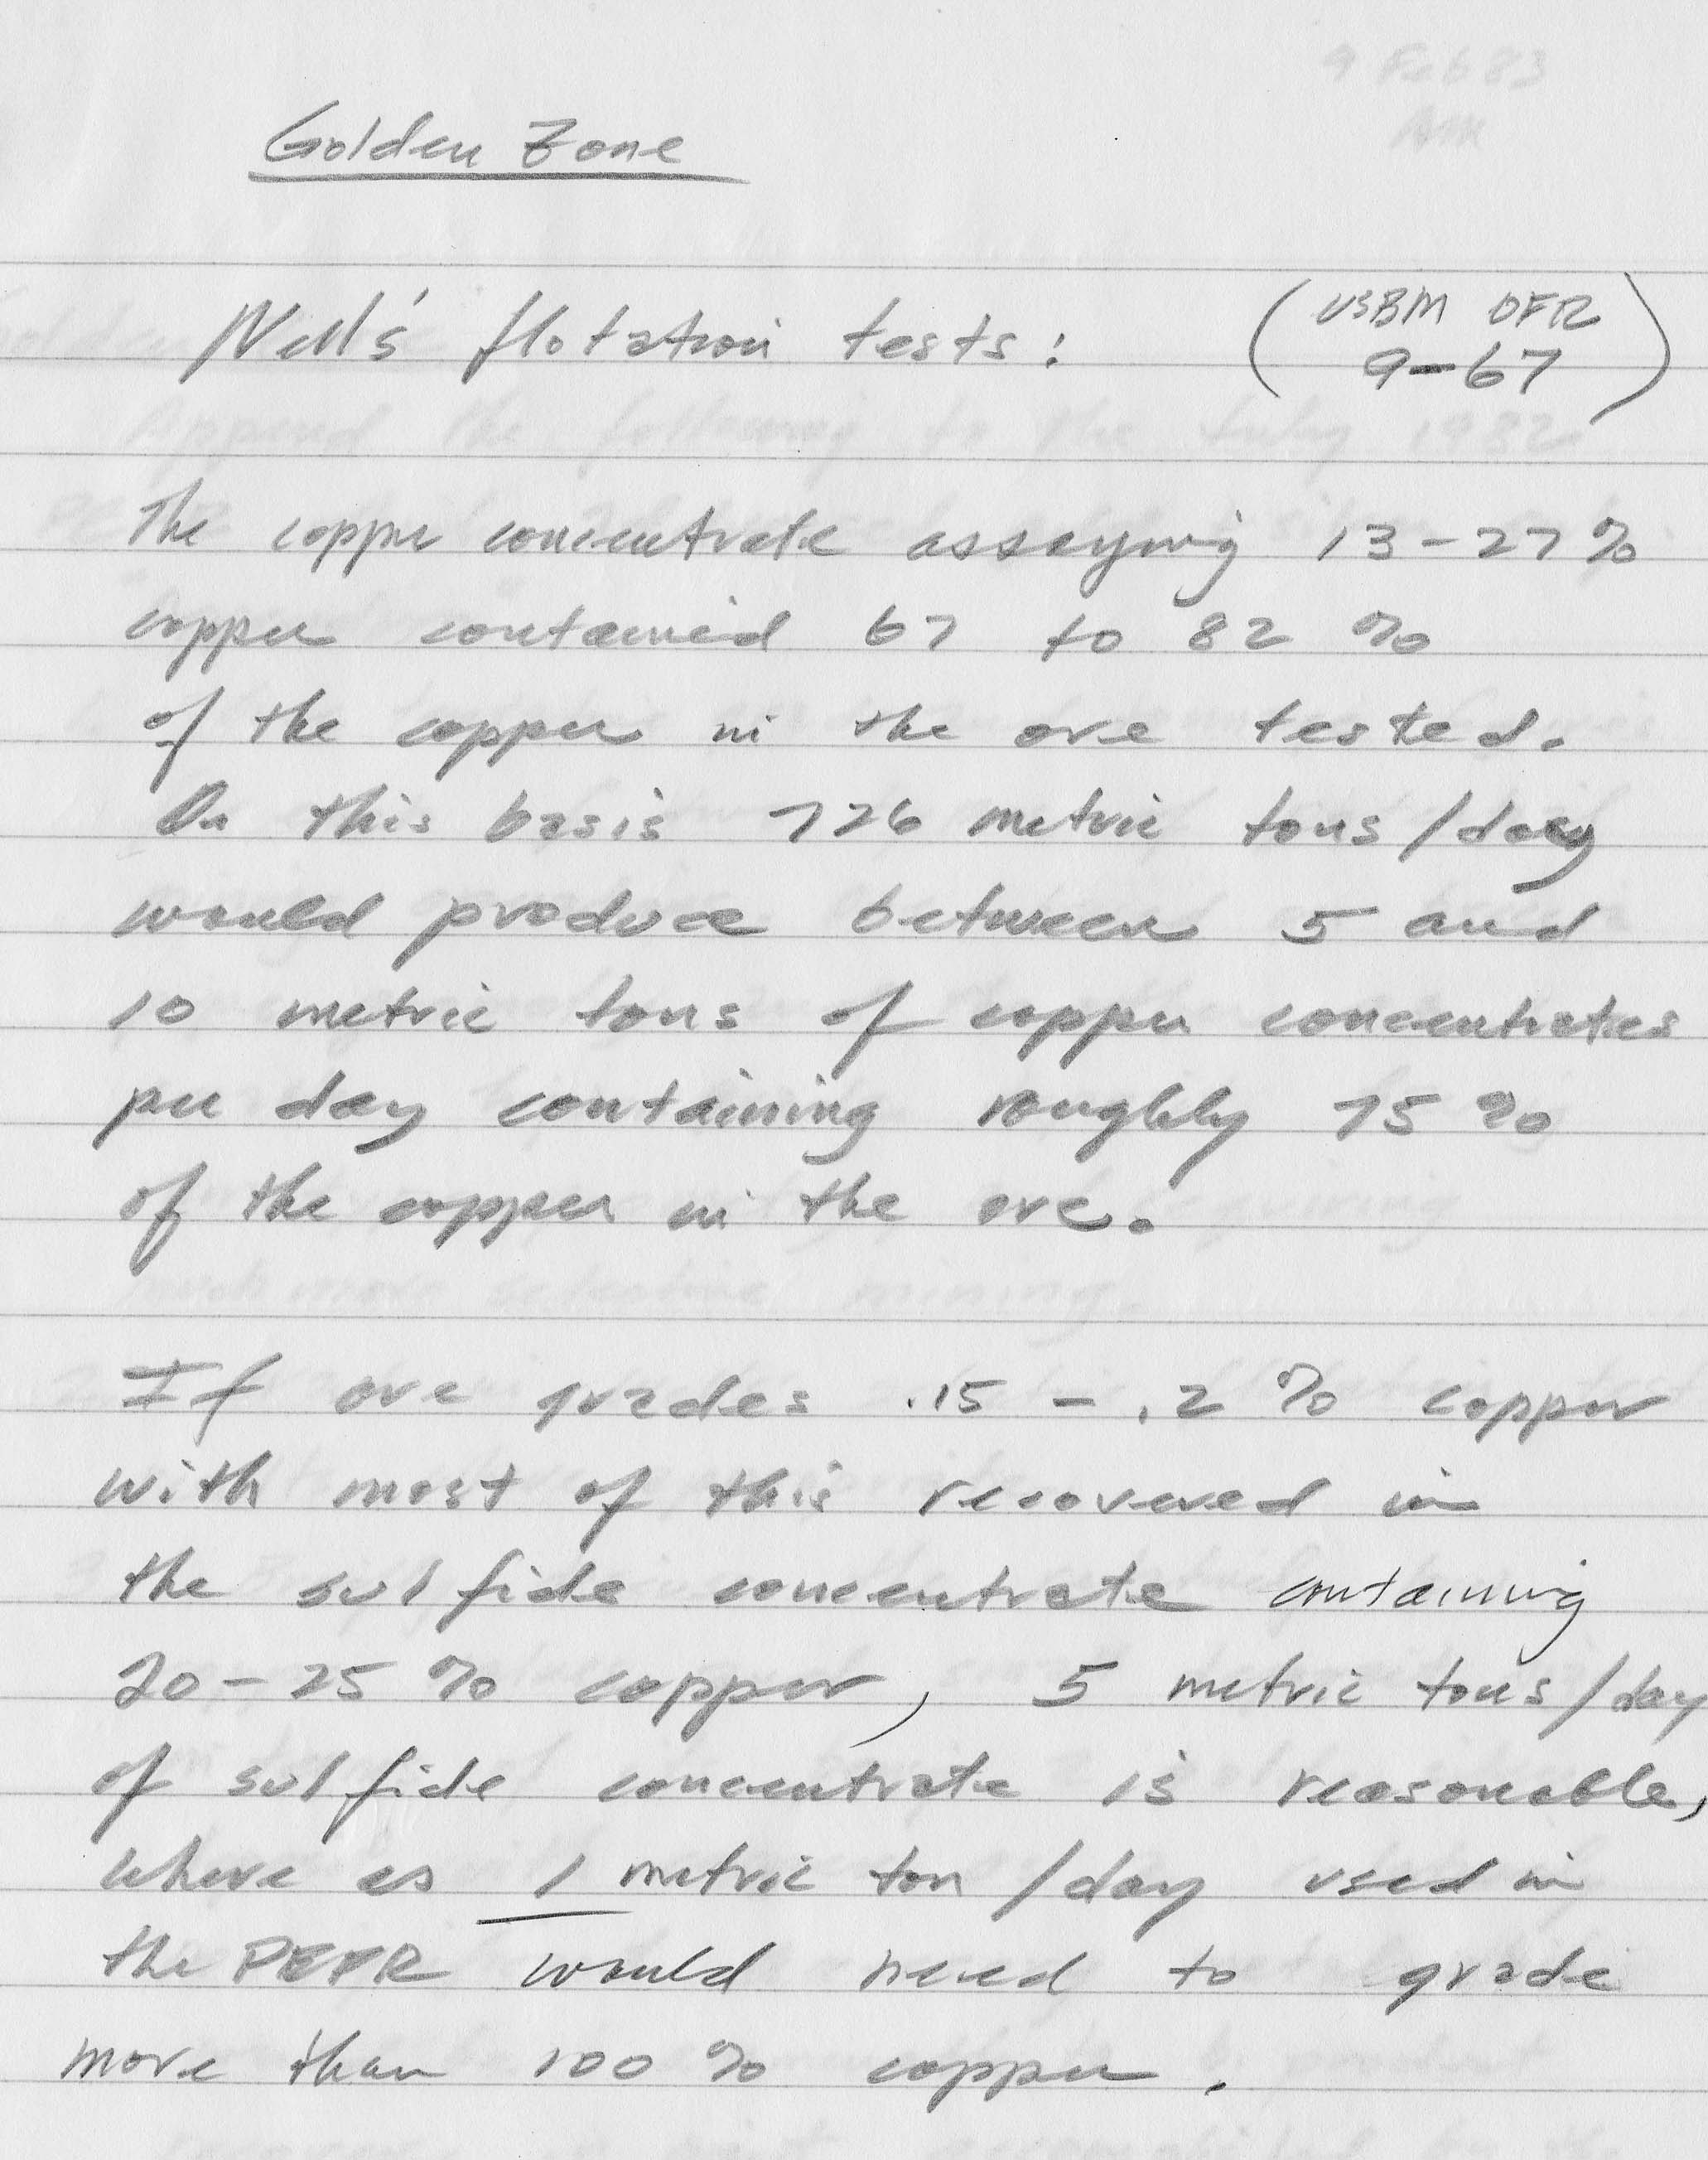 9 Feb 83
AM
Golden Zone
Nell's flotation tests: (USBM OFR 9-67)
Append the following to the July 1982
The copper concentrate assaying 13-27%
copper contained 67 to 82 %
of the copper in the ore tested.
On this basis 726 metric tons/day
would produce between 5 and
10 metric tons of copper concentrates
per day containing roughly 75 %
of the copper in the ore.
much more selective mining.
If ore grades .15 - .2 % copper
with most of this recovered in
the sulfide concentrate containing
20-25 % copper, 5 metric tons/day
of sulfide concentrate is reasonable,
where as 1 metric ton/day used in
the PEPR would need to grade
more than 100 % copper.